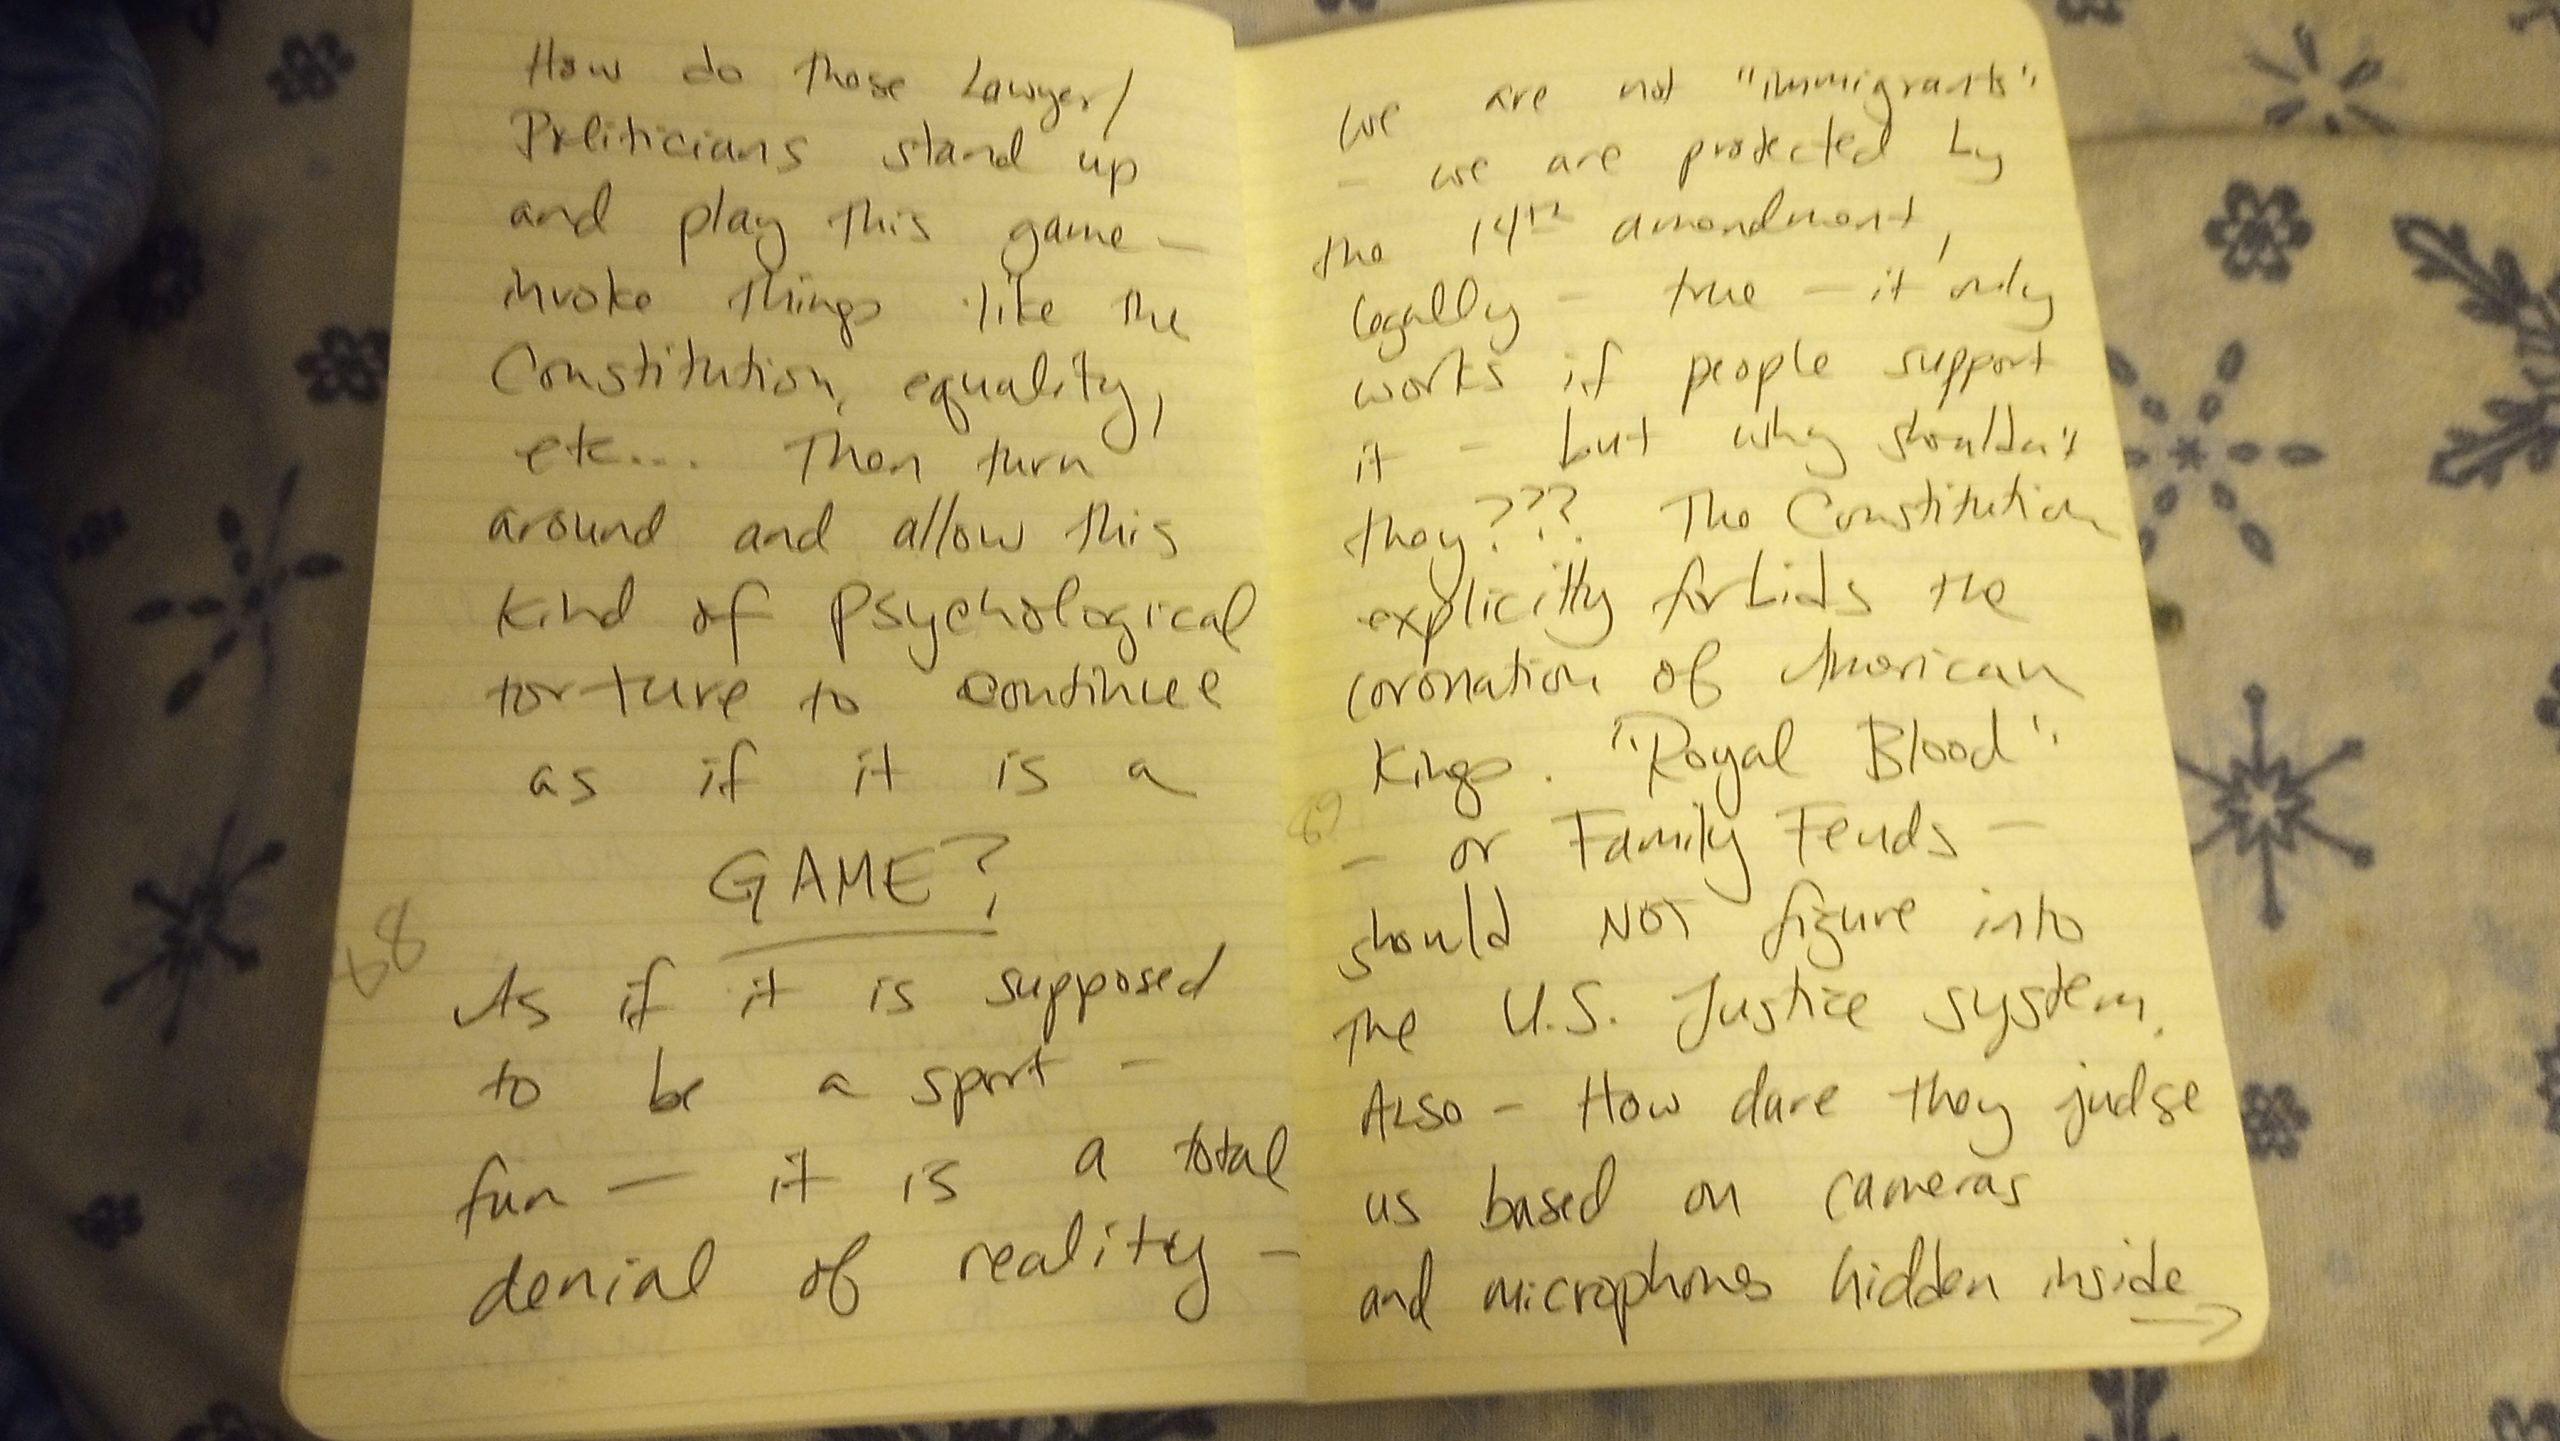 How do those Lawyer/
Politicians stand up
and play this game —
invoke things like the
Constitution, equality,
etc... Then turn
around and allow this
kind of psychological
torture to continue
as if it is a
GAME?
As if it is supposed
to be a sport -
fun — it is a total
denial of reality -
68
We are not "immigrants"
- we are protected by
the 14th amendment,
legally - true - it only
works if people support
it - but why shouldn't
they??? The Constitution
explicitly forbids the
coronation of American
Kings. "Royal Blood"
- or Family Feuds -
should NOT figure into
the U.S. Justice system.
ALSO - How dare they judge
us based on cameras
and microphones hidden inside
→
69